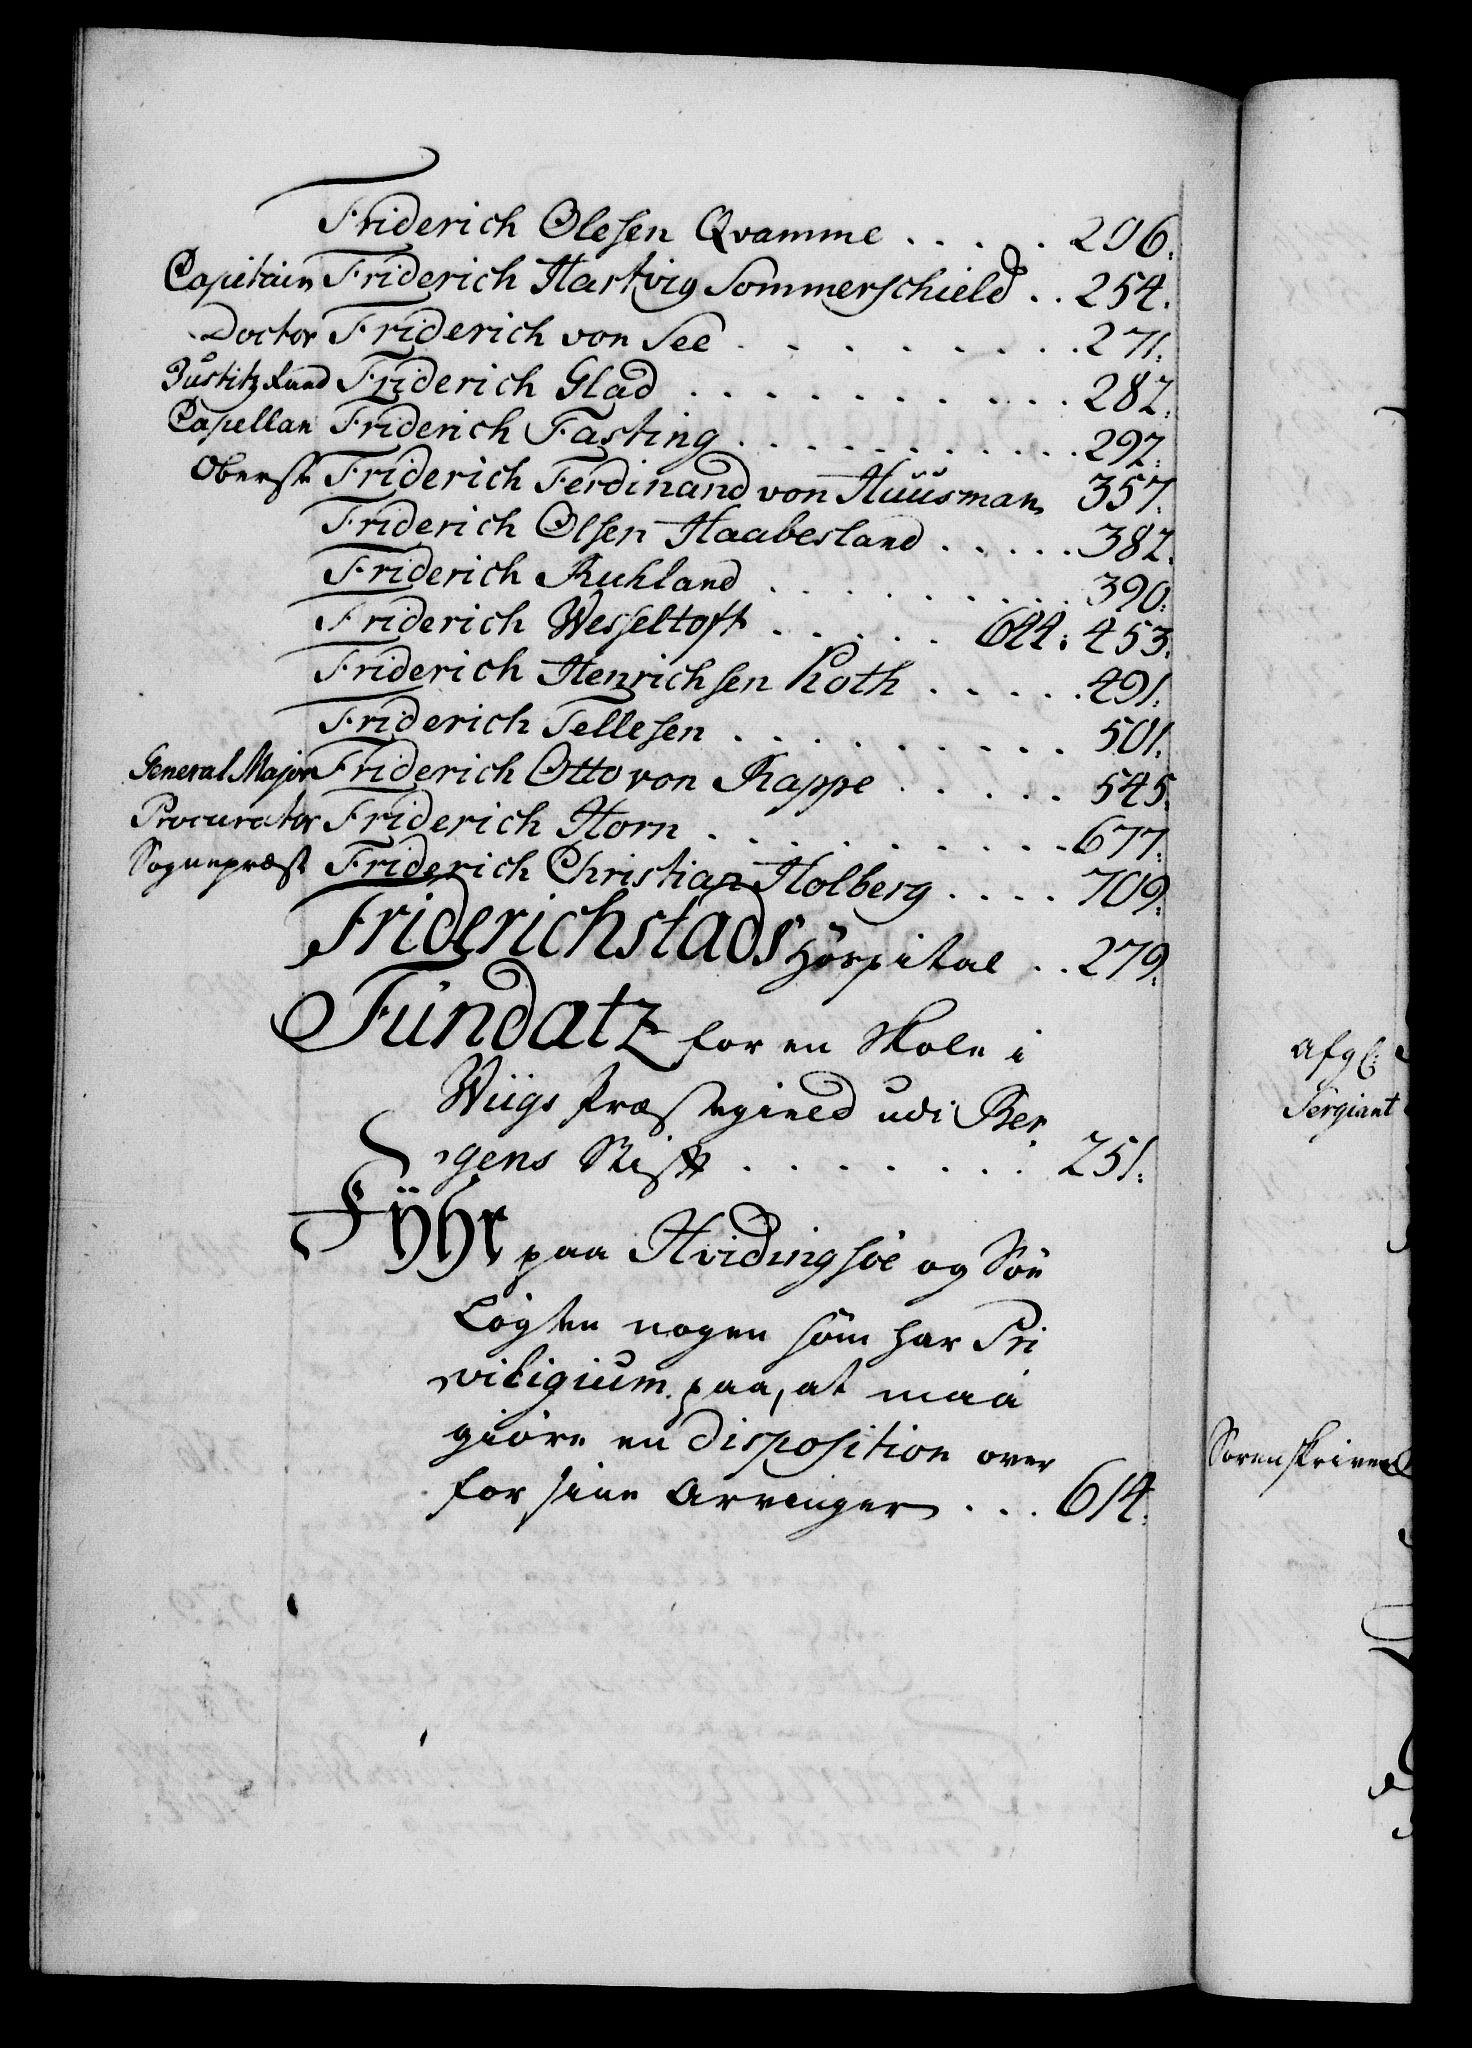 Friderich Olesen Qvamme . . . . . 206.
Capitain Friderich Hartvig Sommerschield . . 254.
Doctor Friderich von See . . . . . . . . . 271.
Justitz Raad Friderich Glad . . . . . . . . . . . 282.
Capellan Friderich Fasting . . . . . . . . . . 292.
Oberste Friderich Ferdinand von Huusman 357.
Friderich Olsen Haabesland . . . . . 382.
Friderich Ruhland . . . . . . . . . . 390.
Friderich Wesseltoft . . . . . 644: 453.
Friderich Henrichsen Roth . . . . . 491.
Friderich Tellesen . . . . . . . . . . 501.
General Major Friderich Otto von Rappe . . . . . 545.
Procurator Friderich Horn . . . . . . . . . . 677.
Sognepræst Friderich Christian Holberg . . . . 709.
Friderichstads Hospital . . 279.
Fundatz for en Skole i
Wiigs Præstegield udi Ber
gens Stift . . . . . . . . 251.
Fÿhr paa Hvidingsöe og Söe
Lögten nogen som har Pri
viligium paa, at maa
giöre en disposition over
for sine Arvinger . . . 614.
Afg<sup>l</sup>:
Sergiant
Sorenskriver